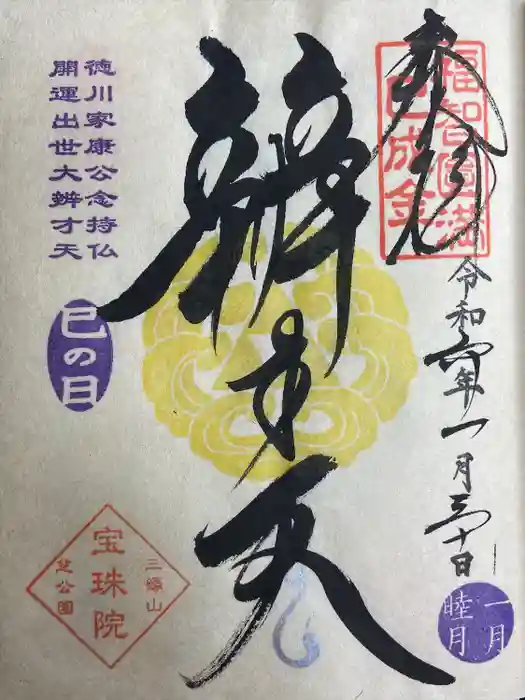 奉拝
福智圓満
巳成金
令和六年一月三十日
一月
睦月
辨才天
徳川家康公念持仏
開運出世大辨才天
巳の日
三縁山
宝珠院
芝公園